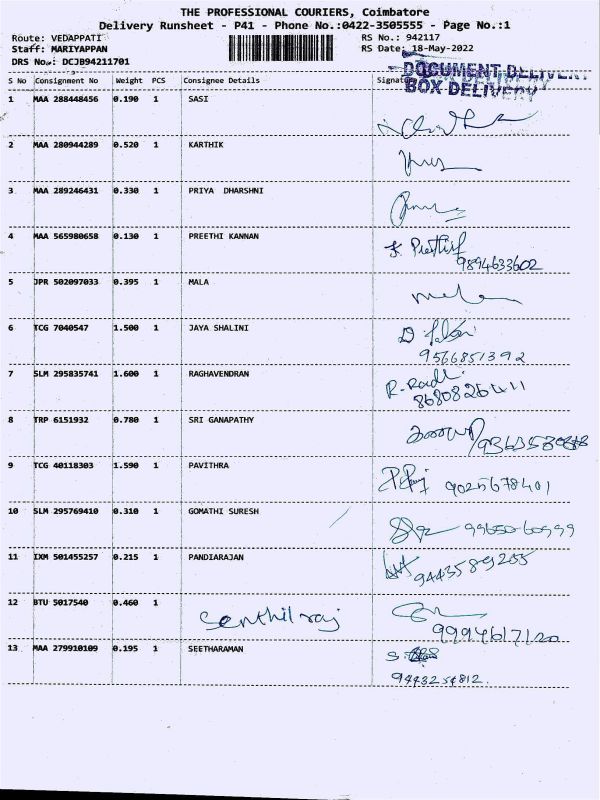 THE PROFESSIONAL COURIERS, Coimbatore
Delivery Runsheet - P41 - Phone No.:0422-3505555 - Page No.:1
Route: VEDAPPATI RS No.: 942117
Staff: MARIYAPPAN RS Date: 18-May-2022
DRS No.: DCJB94211701
DOCUMENT DELIVERY
S No Consignment No Weight PCS Consignee Details Signature
BOX DELIVERY
1 MAA 288448456 0.190 1 SASI
2 MAA 280944289 0.520 1 KARTHIK
3 MAA 289246431 0.330 1 PRIYA DHARSHNI
4 MAA 565980658 0.130 1 PREETHI KANNAN
9894633602
5 JPR 502097033 0.395 1 MALA
6 TCG 7040547 1.500 1 JAYA SHALINI
9566851392
7 SLM 295835741 1.600 1 RAGHAVENDRAN
8680826411
8 TRP 6151932 0.780 1 SRI GANAPATHY
9 TCG 40118303 1.590 1 PAVITHRA
9025678401
10 SLM 295769410 0.310 1 GOMATHI SURESH
99650-60999
11 IXM 501455257 0.215 1 PANDIARAJAN
9443589255
12 BTU 5017540 0.460 1 Senthil raj
9994617120
13 MAA 279910109 0.195 1 SEETHARAMAN
9443254812.